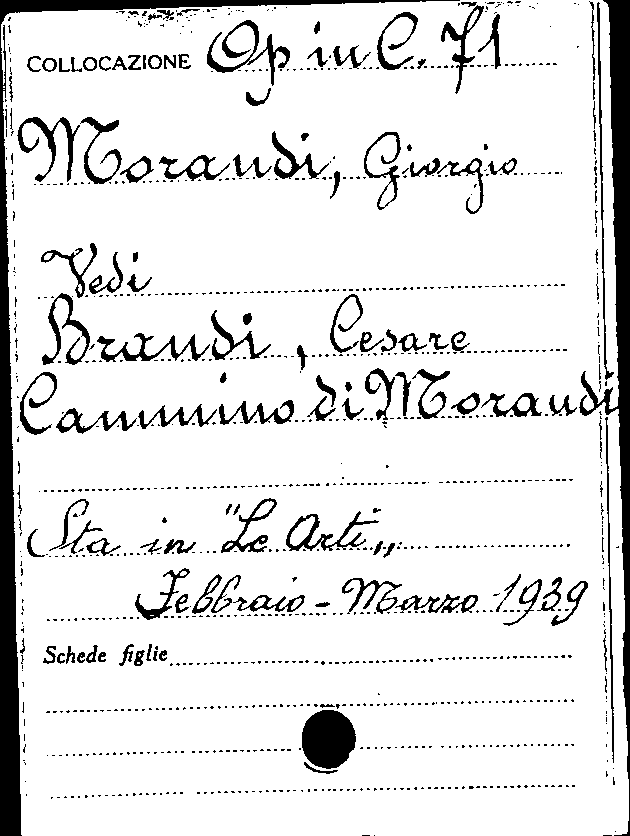 COLLOCAZIONE Op in C. 71
Morandi, Giorgio
Vedi
Brandi, Cesare
Cammino di Morandi
Sta in "Le Arti„
Febbraio - Marzo 1939
Schede figlie